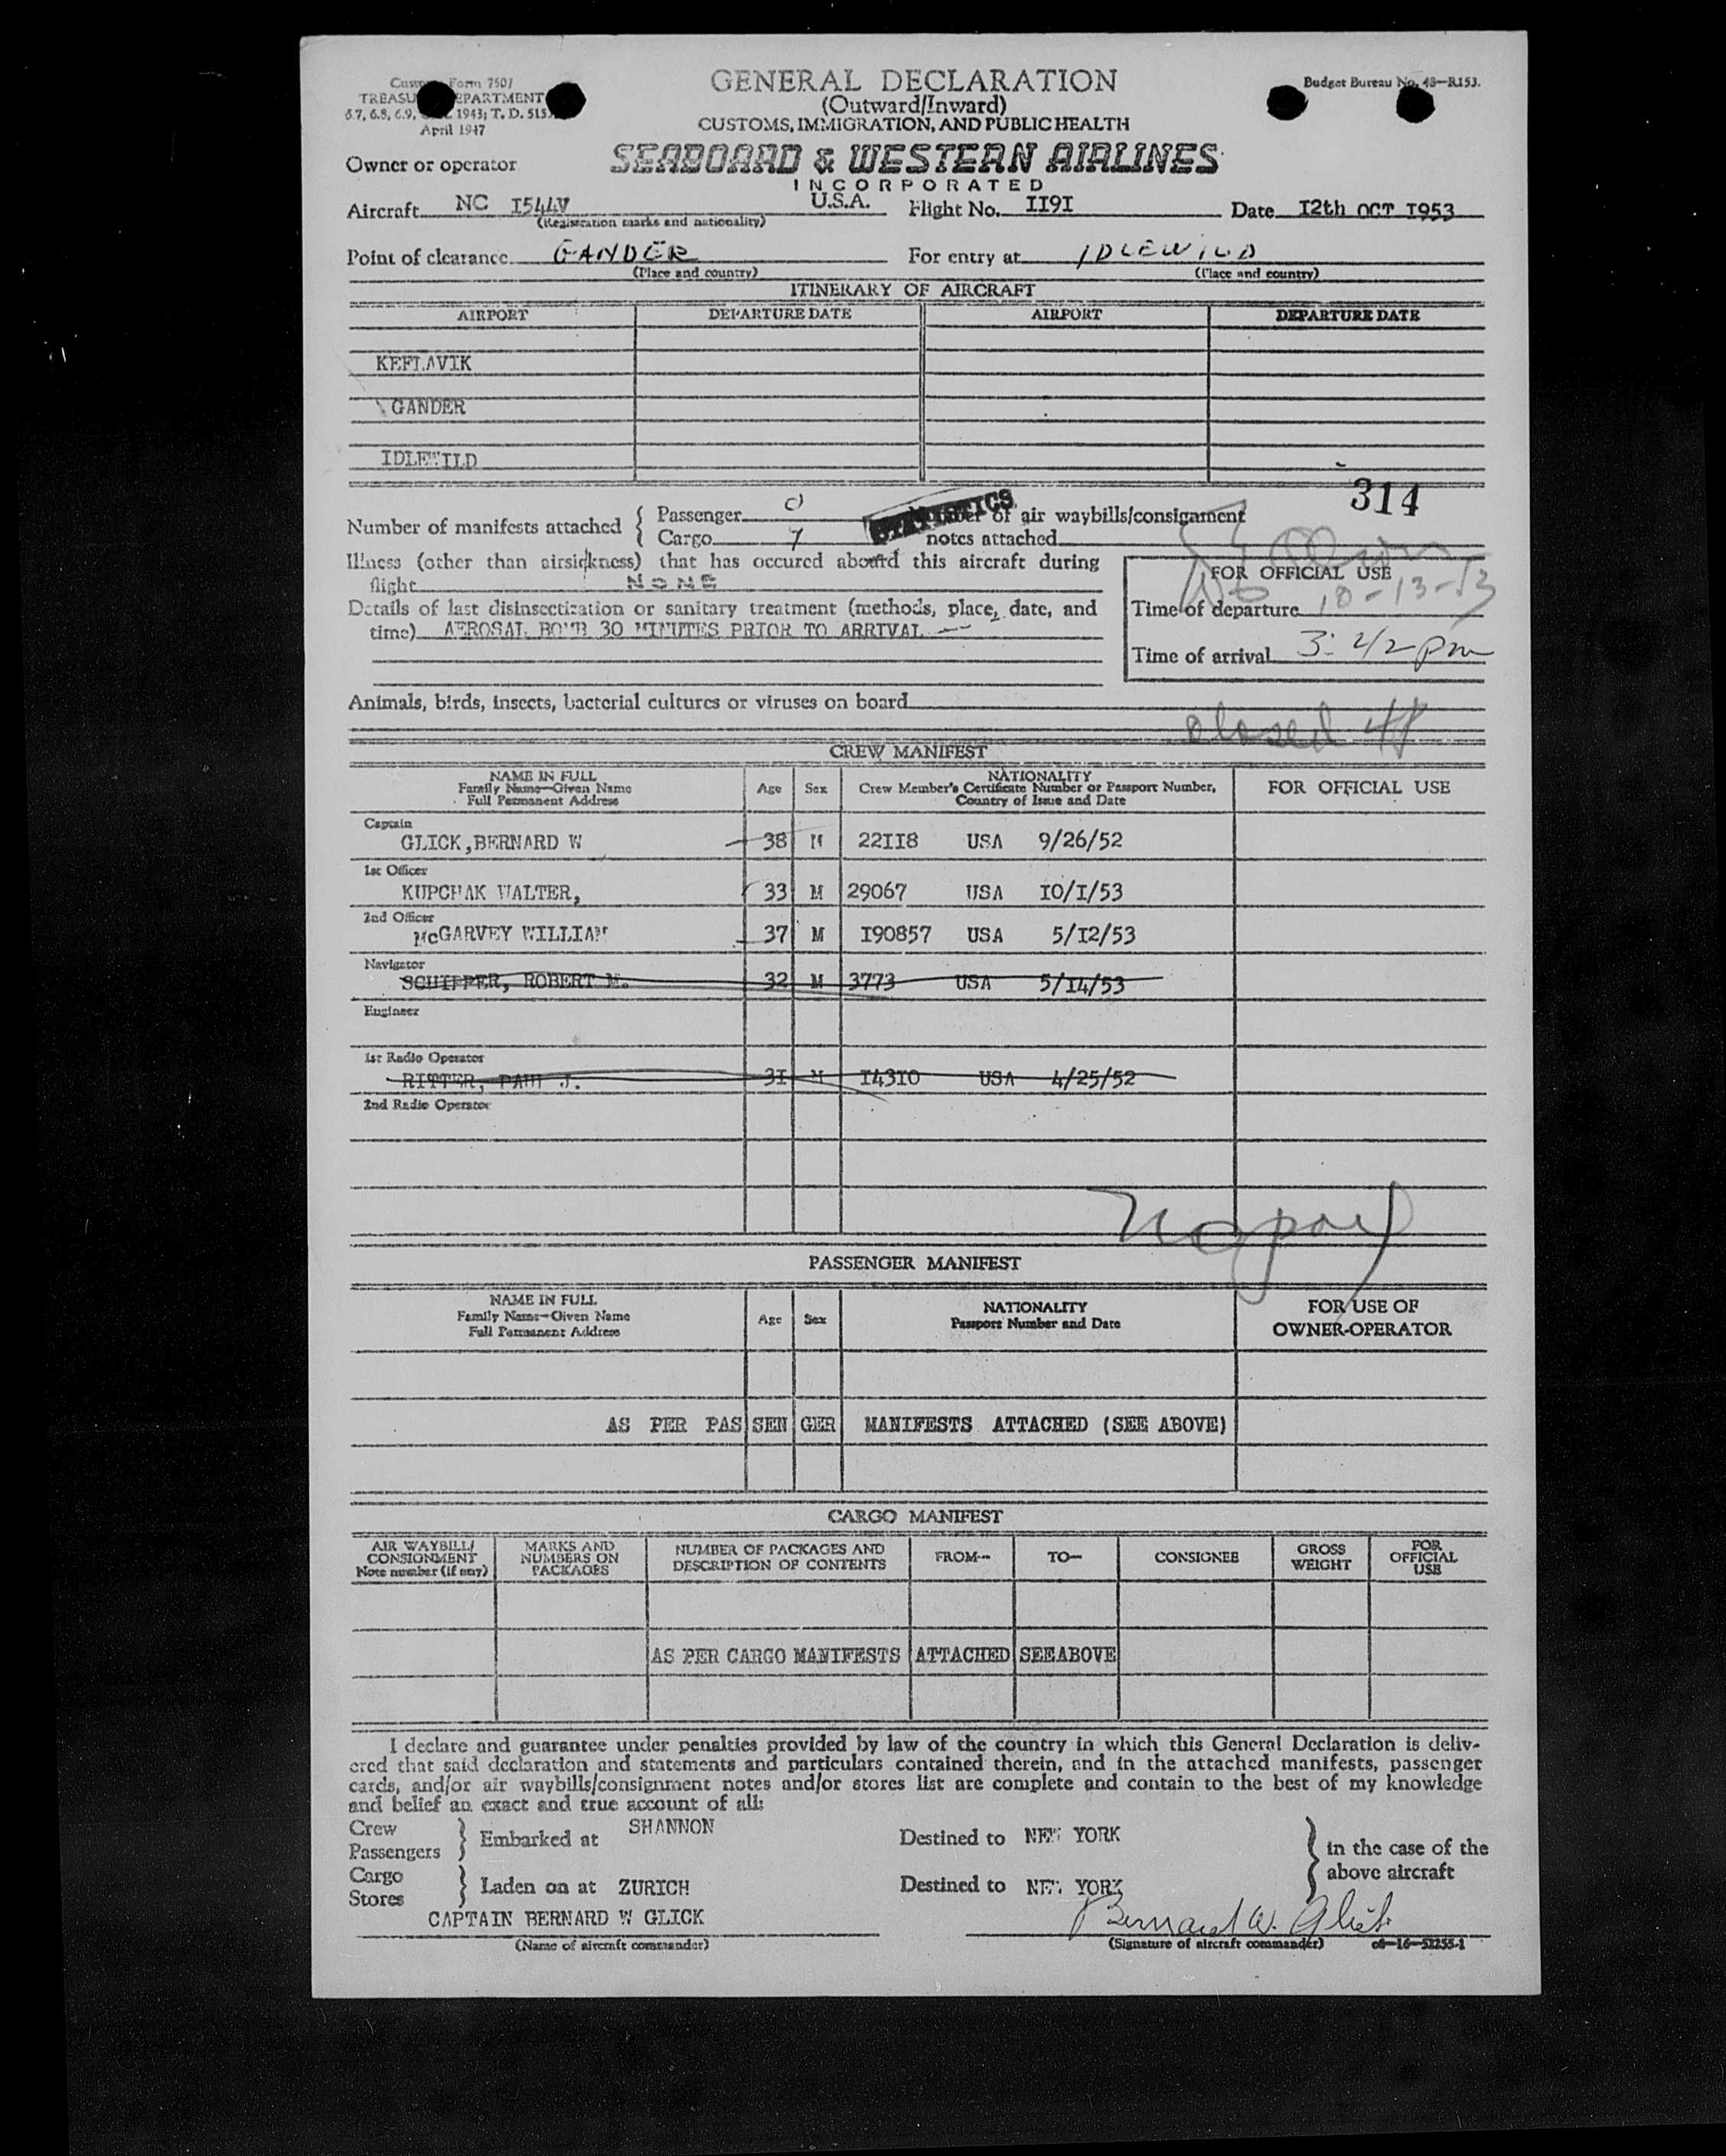 Customs Form 7507
TREASURY DEPARTMENT
April 1947
GENERAL DECLARATION
(Outward/Inward)
CUSTOMS, IMMIGRATION, AND PUBLIC HEALTH
Budget Bureau No. 48—R153.
Owner or operator SEABOARD & WESTERN AIRLINES
INCORPORATED
Aircraft NC I544V U.S.A. Flight No. II9I Date I2th OCT I953
(Registration marks and nationality)
Point of clearance GANDER For entry at IDLEWILD
(Place and country) (Place and country)
ITINERARY OF AIRCRAFT
AIRPORT DEPARTURE DATE AIRPORT DEPARTURE DATE
KEFLAVIK
GANDER
IDLEWILD
314
Number of manifests attached { Passenger 0 Number of air waybills/consignment
Cargo 7 notes attached
STATISTICS
Illness (other than airsickness) that has occured aboard this aircraft during
flight NONE
FOR OFFICIAL USE
10-13-53
Details of last disinsectization or sanitary treatment (methods, place, date, and
time) AEROSAL BOMB 30 MINUTES PRIOR TO ARRIVAL
Time of departure
Time of arrival 3:42 pm
Animals, birds, insects, bacterial cultures or viruses on board
closed
CREW MANIFEST
NAME IN FULL
Family Name—Given Name
Full Permanent Address
Age Sex
NATIONALITY
Crew Member's Certificate Number or Passport Number,
Country of Issue and Date
FOR OFFICIAL USE
Captain
GLICK,BERNARD W 38 M 22II8 USA 9/26/52
1st Officer
KUPCHAK WALTER, 33 M 29067 USA IO/I/53
2nd Officer
McGARVEY WILLIAM 37 M I90857 USA 5/I2/53
Navigator
SCHIPPER, ROBERT M. 32 M 3773 USA 5/I4/53
Engineer
1st Radio Operator
RITTER, PAUL J. 3I M I43IO USA 4/25/52
2nd Radio Operator
PASSENGER MANIFEST
NAME IN FULL
Family Name—Given Name
Full Permanent Address
Age Sex
NATIONALITY
Passport Number and Date
FOR USE OF
OWNER-OPERATOR
AS PER PASSENGER MANIFESTS ATTACHED (SEE ABOVE)
CARGO MANIFEST
AIR WAYBILL/
CONSIGNMENT
Note number (if any)
MARKS AND
NUMBERS ON
PACKAGES
NUMBER OF PACKAGES AND
DESCRIPTION OF CONTENTS
FROM— TO— CONSIGNEE
GROSS
WEIGHT
FOR
OFFICIAL
USE
AS PER CARGO MANIFESTS ATTACHED SEE ABOVE
I declare and guarantee under penalties provided by law of the country in which this General Declaration is deliv-
ered that said declaration and statements and particulars contained therein, and in the attached manifests, passenger
cards, and/or air waybills/consignment notes and/or stores list are complete and contain to the best of my knowledge
and belief an exact and true account of all:
Crew
Passengers } Embarked at SHANNON Destined to NEW YORK
Cargo
Stores } Laden on at ZURICH Destined to NEW YORK
} in the case of the
above aircraft
CAPTAIN BERNARD W GLICK Bernard W. Glick
(Name of aircraft commander) (Signature of aircraft commander) c8—16—52255-1